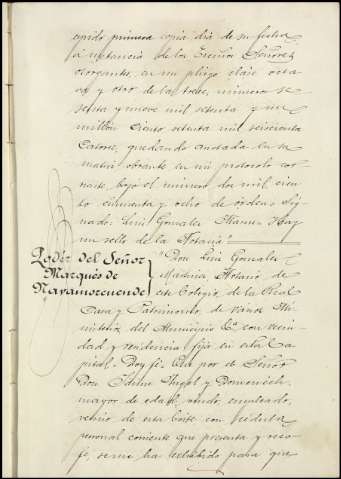 espido primera copia dia de su fecha
á instancia de los Excmos Señores
otorgantes, en un pliego clase octa
va y otro de la trece, número se
senta y nueve mil setenta y un
millon ciento setenta mil seiscientos
catorce, quedando anotada en su
matriz obrante en mi protocolo cor
riente, bajo el número dos mil, cien
to cincuenta y ocho de orden = Sig
nado: Luis Gonzalez Hay
un sello de la Notaría
Poder del Señor
Marqués de
Navamorcuende
"Don Luis Gonzalez
Notario de
este Colegio, de la Real
Casa y Patrimonio, de varios Mi
nisterios, del Municipio &ª con vecin
dad y residencia fija en esta Ca
pital = Doy fé: Que por el Señor
Don Angel y Domenech
mayor de edad, viudo, empleado,
vecino de esta Corte con cédula
personal corriente que presenta y reco
je, se me ha exhibido para que